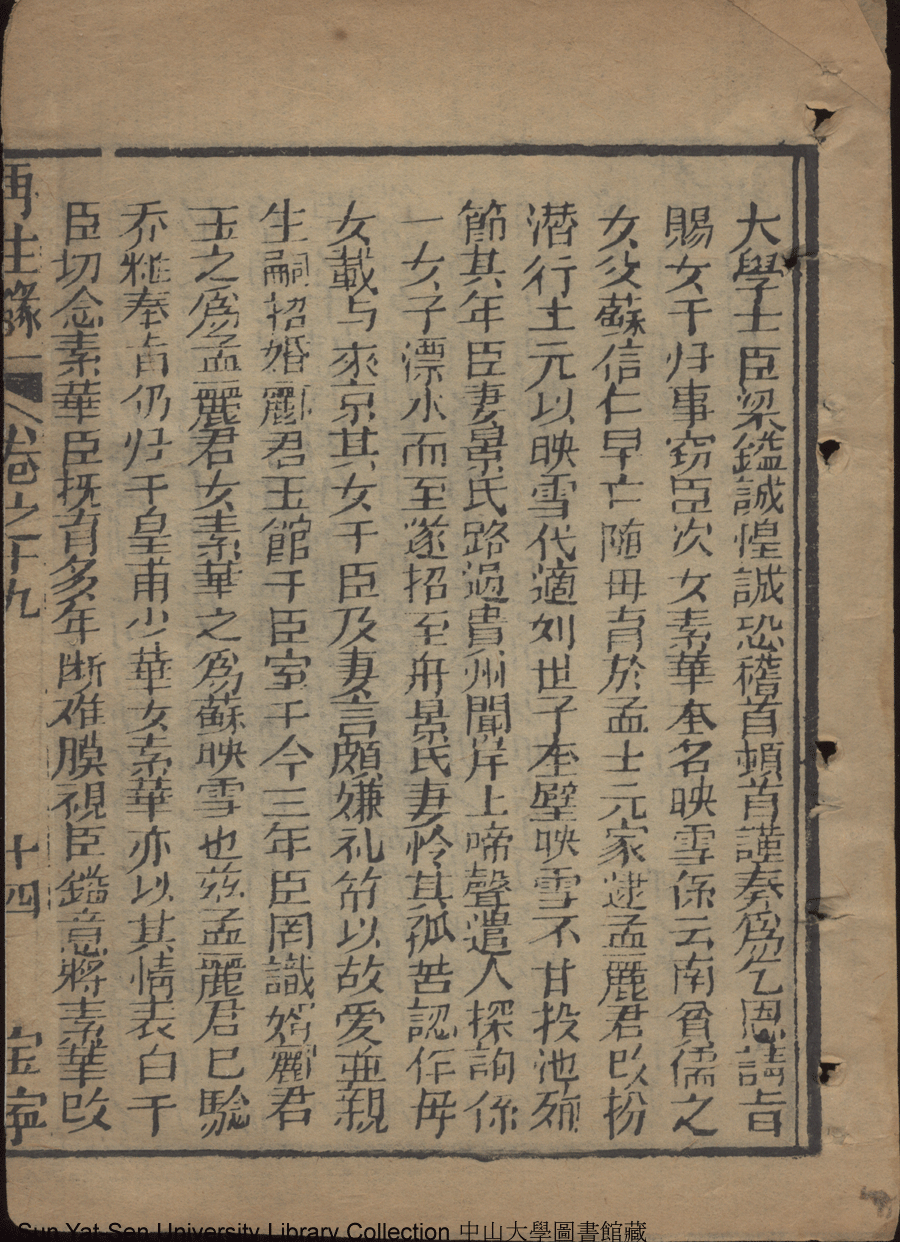 大學士臣梁鑑誠惶誠恐稽首頓首謹奏爲乞恩請旨
賜女于归事窃臣次女素華本名映雪係云南貧儒之
女父蘇信仁早亡随毋育於孟士元家逮孟麗君改扮
潜行士元以映雪代適刘世子本壁映雪不甘投池殒
節其年臣妻景氏路過貴州聞岸上啼聲遣人探詢係
一女子漂水而至遂招至舟景氏妻怜其孤苦認作毋
女載与來京其女于臣及妻言頗嫌礼節以故愛並親
生嗣招婚酈君玉館于臣室于今三年臣罔識婿酈君
玉之爲孟麗君女素華之爲蘇映雪也兹孟麗君已驗
乔粧奉旨仍归于皇甫少華女素華亦以其情表白于
臣切念素華臣抚育多年断难膜視臣鑑意將素華改
再生緣 卷之十九 十四 宝寧
Sun Yat-Sen University Library Collection 中山大學圖書館藏